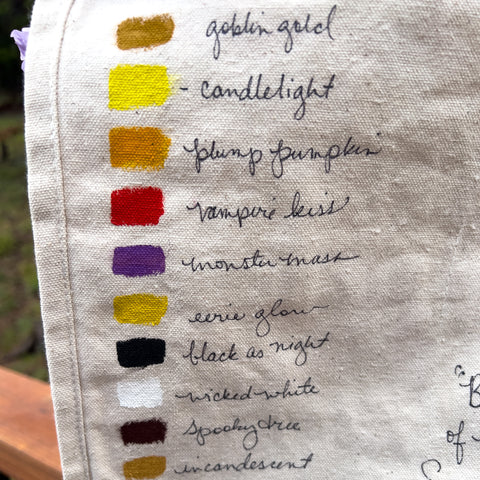 goblin gold
- candlelight
plump pumpkin
vampire kiss
monster mash
eerie glow
black as night
wicked white
spooky tree
incandescent
"B
of